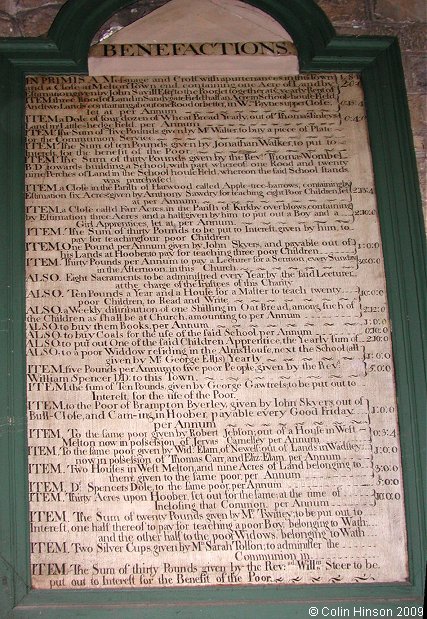 BENEFACTIONS
IN PRIMIS A Messuage and Croft with apurtenances in this town
and a Close at Melton Town end containing one Acre of Land by
Land in Little-hedge Field, per Annum
ITEM The Sum of five Pounds given by Mr Walter to buy a piece of Plate
ITEM The Sum of ten Pounds given by Jonathan Walker, to put to
Interest for the benefit of the Poor
ITEM The Sum of thirty Pounds given by the Revd Thomas Wombel,
B.D. towards building a School, with part whereof one Rood and twenty
nine Perches of Land in the School house Field, whereon the said School stands
was purchased
ITEM a Close in the Parish of Harwood called Apple-tree-barrows, containing by
Estimation six Acres given by Anthony Sawdry for teaching eight Poor Children Set
at per Annum
ITEM a Close called Far Acres, in the Parish of Kirkby over blows, containing
by Estimation three Acres and a half, given by him to put out a Boy and a
Girl Apprentices, Let at, per Annum
ITEM The Sum of thirty Pounds to be put to Interest, given by him, to
pay for teaching four poor Children
ITEM One Pound per Annum given by John Skyers, and payable out of
his Lands at Hoober to pay for teaching three poor Children 1:0:0
ITEM Thirty Pounds per Annum to pay a Lecturer for a Sermon every Sunday
in the Afternoon, in this Church 30:0:0
ALSO Eight Sacraments to be administred every Year by the said Lecturer,
at the charge of the Trustees of this Charity
ALSO Ten Pounds a Year and a House for a Master to teach twenty
poor Children, to Read and Write 10:0:0
ALSO a Weekly distribution of one Shilling in Oat Bread, among such of
the Children as shall be at Church, amounting to per Annum 2:12:0
ALSO to buy them Books, per Annum
ALSO to buy Coals for the use of the said School, per Annum
ALSO to put out One of the said Children Apprentice, the Yearly sum of
ALSO to a poor Widow residing in the Alms House, next the School (all
given by Mr George Ellis) Yearly 1:0:0
ITEM five Pounds per Annum to five poor People, given by the Revd
William Spencer to this Town 5:0:0
ITEM the sum of Ten Pounds, given by George Gawtress, to be put out to
Interest, for the use of the Poor
ITEM to the Poor of Brampton Byerley, given by John Skyers out of
Bull-Close, and Carr-ing in Hoober, payable every Good Friday
per Annum 1:0:0
ITEM To the same poor given by Robert Jebson; out of a House in West
Melton now in possession of Jervas Camelley per Annum 0:5:4
ITEM To the same poor given by Widw Elam of Newell, out of Lands in Wadsley
now in possession of Thomas Carr, and Eliz. Elam, per Annum 1:0:0
ITEM Two Houses in West Melton, and nine Acres of Land belonging to
them, given to the same poor, per Annum
ITEM Dr Spencers Dole, to the same poor, per Annum
ITEM Thirty Acres upon Hoober, set out for the same at the time of
Inclosing that Common, per Annum
ITEM The Sum of twenty Pounds given by Mr Twittey to be put out to
Interest, one half thereof to pay for teaching a poor Boy belonging to Wath
and the other half to the poor Widows, belonging to Wath
ITEM Two Silver Cups, given by Mrs Sarah Tolson, to administer the
Communion in
ITEM The Sum of thirty Pounds given by the Revd Willm Steer to be
put out to Interest for the Benefit of the Poor
© Colin Hinson 2009